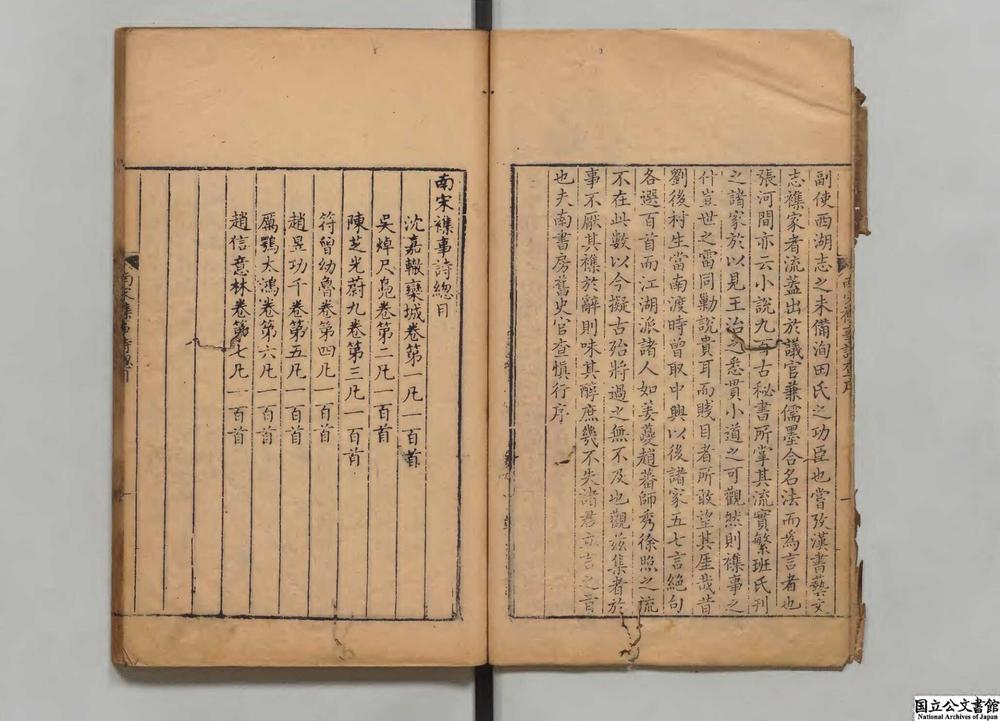 副使西湖志之未備洵田氏之功臣也嘗攷漢書藝文
志襍家者流葢出於議官兼儒墨合名法而為言者也
張河間亦云小說九百古秘書所掌其流實繁班氏刋
之諸家於以見王治之悉貫小道之可觀然則襍事之
什豈世之雷同勦說貴耳而賤目者所敢望其厓哉昔
劉後村生當南渡時曾取中興以後諸家五七言絕句
各選百首而江湖派諸人如姜夔趙蕃師秀徐照之流
不在此數以今擬古殆將過之無不及也觀兹集者於
事不厭其襍於辭則味其醇庶幾不失諸君立言之旨
也夫南書房舊史官查愼行序
南宋襍事詩總目
沈嘉轍欒城卷第一凡一百首
吳焯尺鳧卷第二凡一百首
陳芝光蔚九卷第三凡一百首
符曾幼魯卷第四凡一百首
趙昱功千卷第五凡一百首
厲鶚太鴻卷第六凡一百首
趙信意林卷第七凡一百首
南宋襍事詩總目
国立公文書館
National Archives of Japan